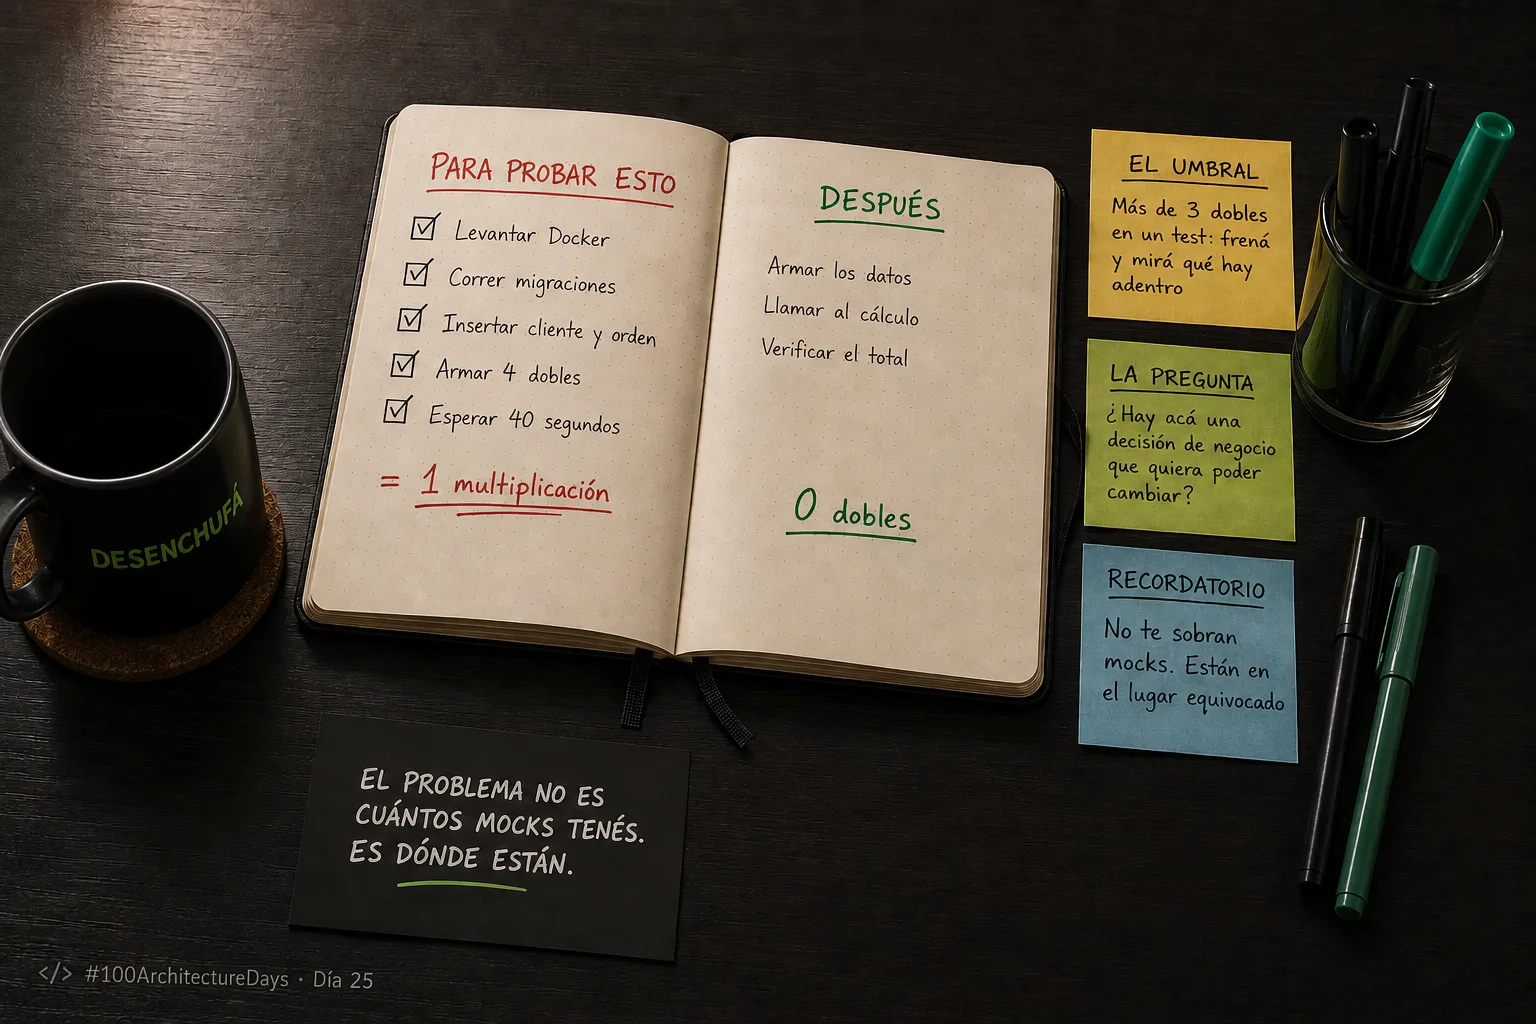 PARA PROBAR ESTO
Levantar Docker
Correr migraciones
Insertar cliente y orden
Armar 4 dobles
Esperar 40 segundos
= 1 multiplicación
DESPUÉS
Armar los datos
Llamar al cálculo
Verificar el total
0 dobles
EL UMBRAL
Más de 3 dobles
en un test: frená
y mirá qué hay
adentro
LA PREGUNTA
¿Hay acá una
decisión de negocio
que quiera poder
cambiar?
RECORDATORIO
No te sobran
mocks. Están en
el lugar equivocado
DESENCHUFÁ
EL PROBLEMA NO ES
CUÁNTOS MOCKS TENÉS.
ES DÓNDE ESTÁN.
</> #100ArchitectureDays · Día 25